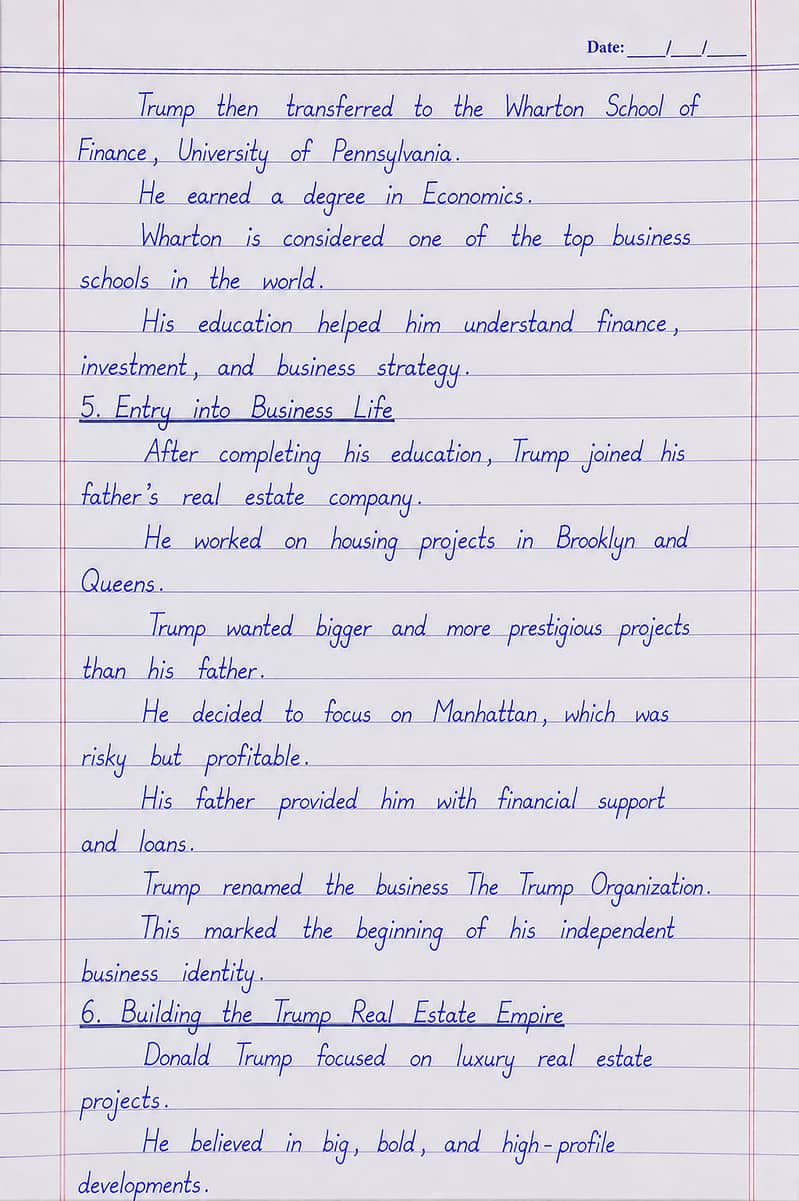 Date: ____/___/____
Trump then transferred to the Wharton School of
Finance, University of Pennsylvania.
He earned a degree in Economics.
Wharton is considered one of the top business
schools in the world.
His education helped him understand finance,
investment, and business strategy.
5. Entry into Business Life
After completing his education, Trump joined his
father's real estate company.
He worked on housing projects in Brooklyn and
Queens.
Trump wanted bigger and more prestigious projects
than his father.
He decided to focus on Manhattan, which was
risky but profitable.
His father provided him with financial support
and loans.
Trump renamed the business The Trump Organization.
This marked the beginning of his independent
business identity.
6. Building the Trump Real Estate Empire
Donald Trump focused on luxury real estate
projects.
He believed in big, bold, and high-profile
developments.